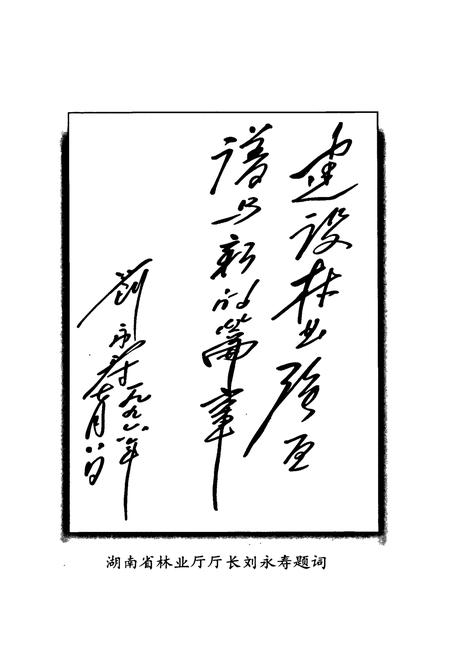 建设林业强
谱写新的篇章
劉永寿一九九六年
月八日
湖南省林业厅厅长刘永寿题词